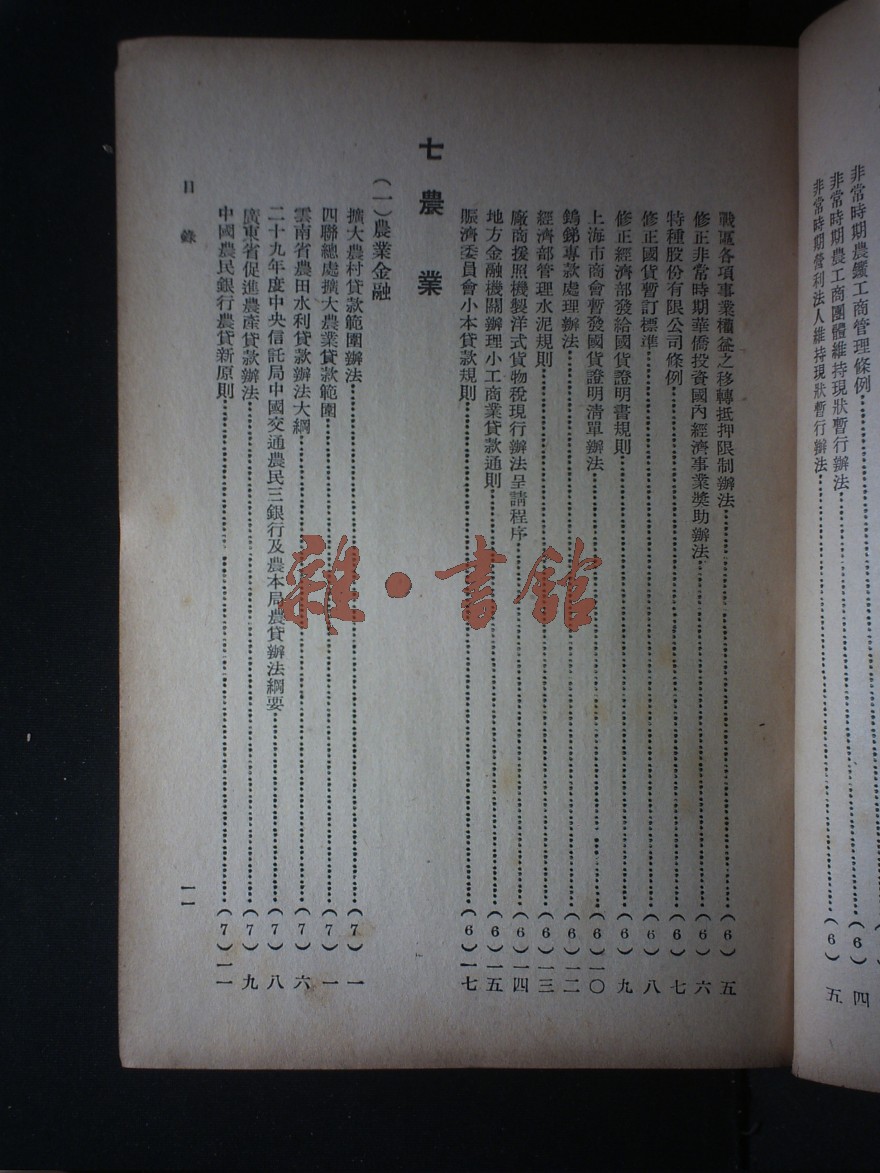 非常時期農鑛工商管理條例……(6)四
非常時期農工商團體維持現狀暫行辦法……(6)
非常時期營利法人維持現狀暫行辦法……(6)五
戰區各項事業權益之移轉抵押限制辦法……(6)五
修正非常時期華僑投資國內經濟事業獎助辦法……(6)六
特種股份有限公司條例……(6)七
修正國貨暫訂標準……(6)八
修正經濟部發給國貨證明書規則……(6)九
上海市商會暫發國貨證明清單辦法……(6)一〇
鎢銻專款處理辦法……(6)一二
經濟部管理水泥規則……(6)一三
廠商援照機製洋式貨物稅現行辦法呈請程序……(6)一四
地方金融機關辦理小工商業貸款通則……(6)一五
賑濟委員會小本貸款規則……(6)一七
七 農業
(一)農業金融
擴大農村貸款範圍辦法……(7)一
四聯總處擴大農業貸款範圍……(7)一
雲南省農田水利貸款辦法大綱……(7)六
二十九年度中央信託局中國交通農民三銀行及農本局農貸辦法綱要……(7)八
廣東省促進農產貸款辦法……(7)九
中國農民銀行農貸新原則……(7)一一
目錄
一一
雜·書館